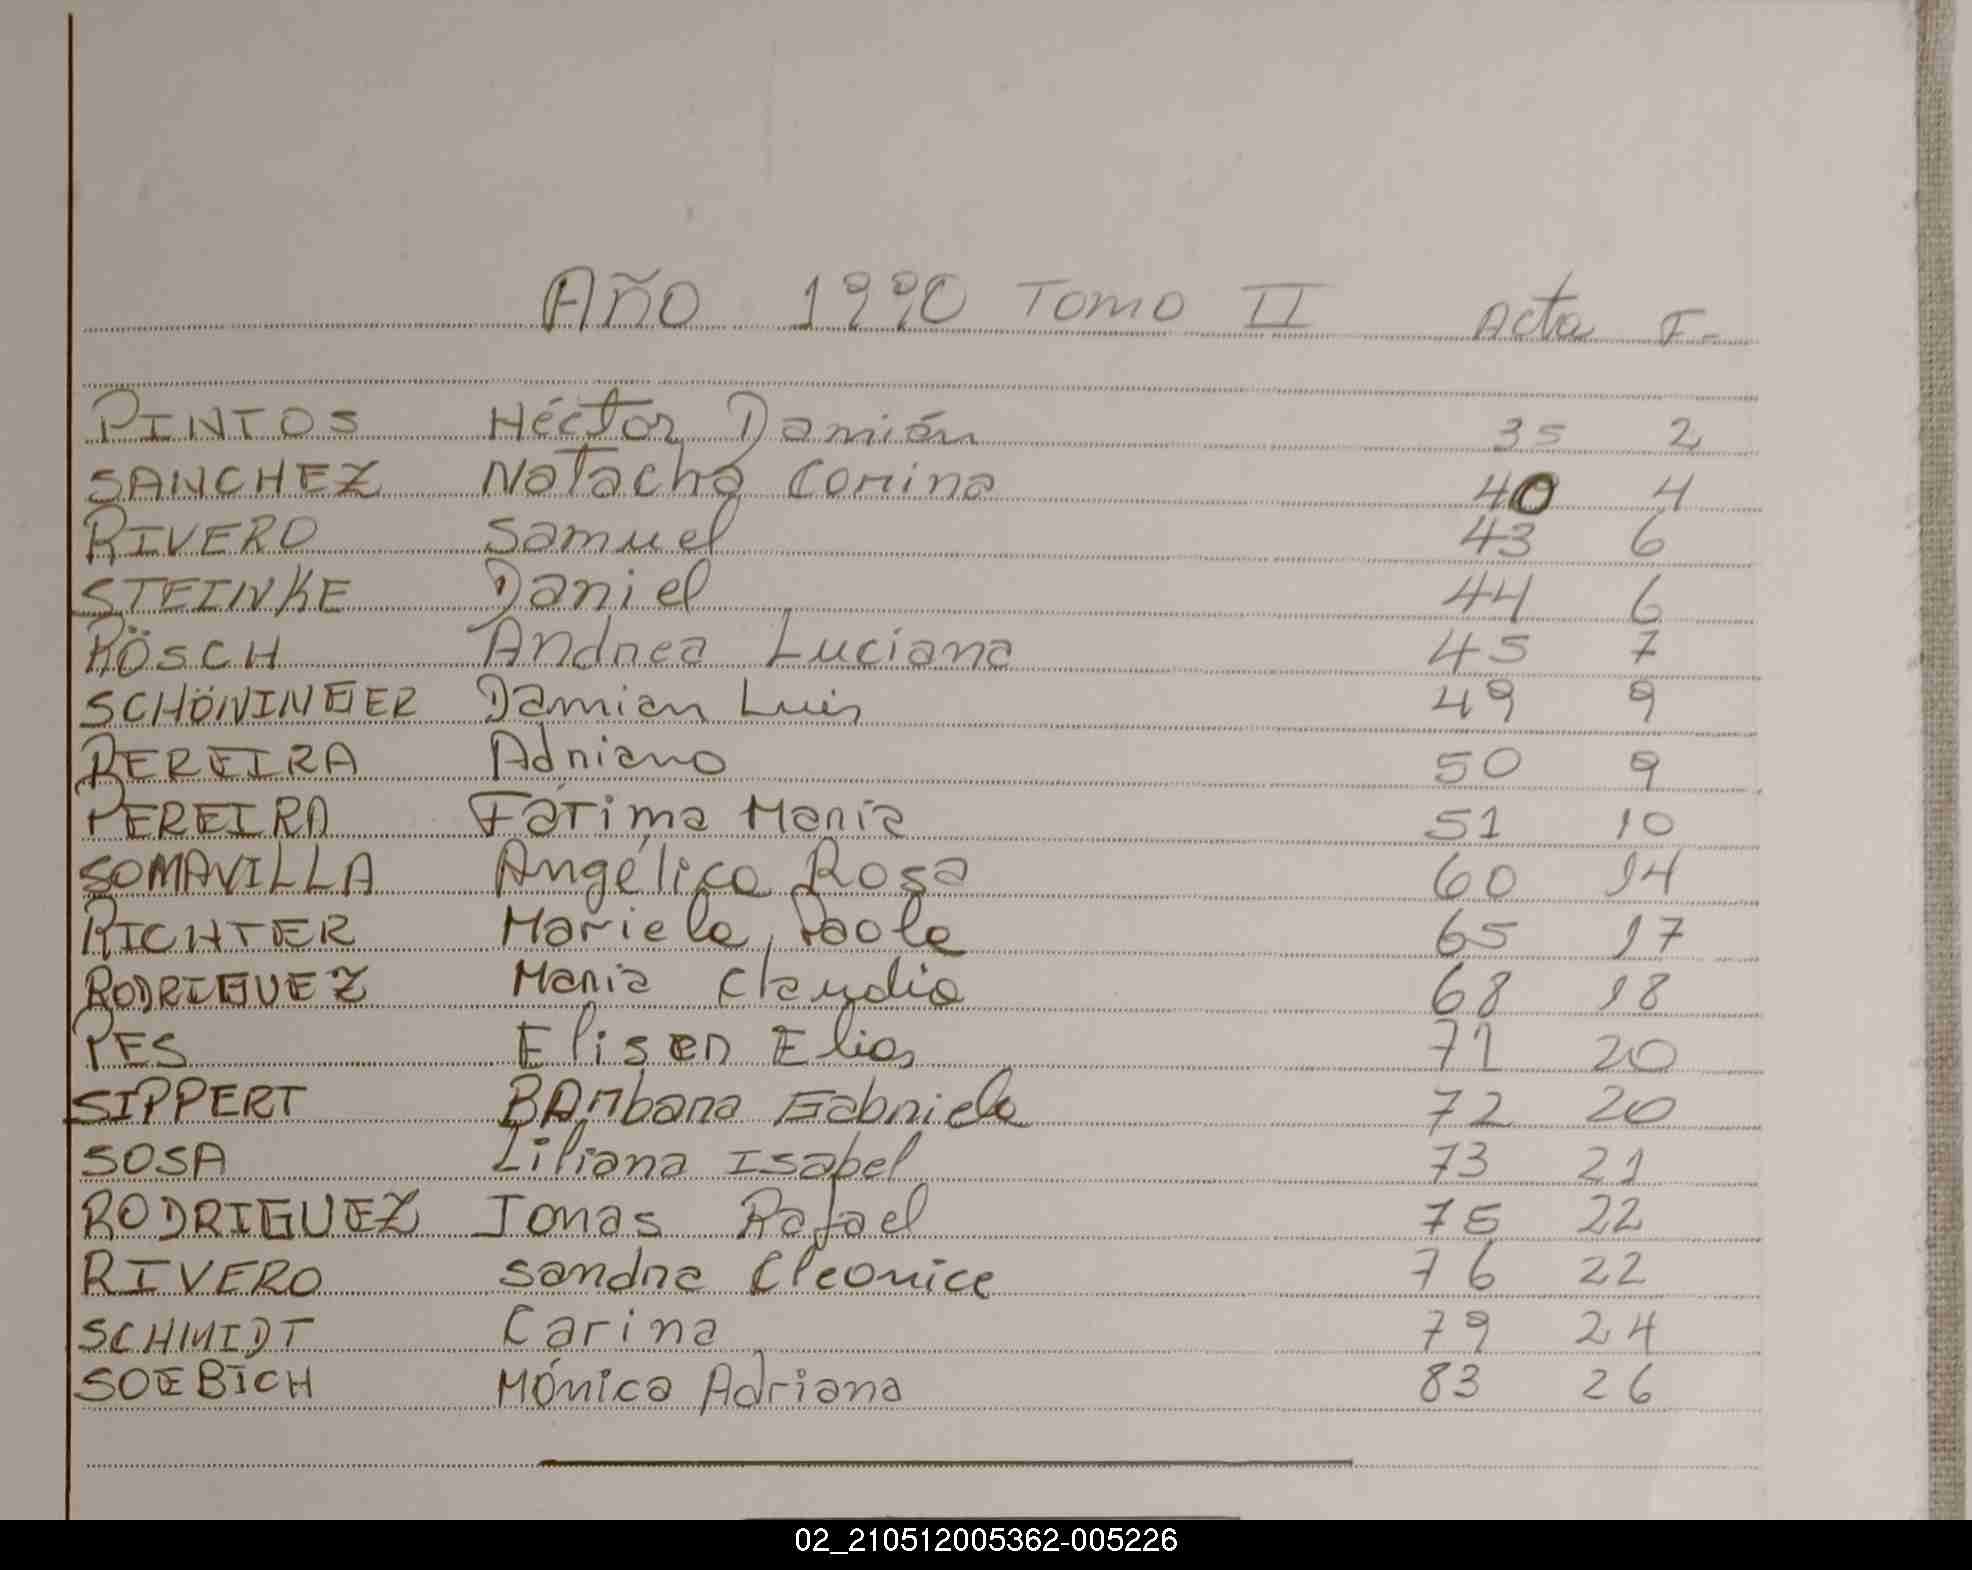 Año 1990 Tomo II Acta F-
PINTOS Héctor Damián 35 2
SANCHEZ Natacha Corina 40 4
RIVERO Samuel 43 6
STEINKE Daniel 44 6
RÖSCH Andrea Luciana 45 7
SCHÖNINGER Damian Luis 49 9
PEREIRA Adriano 50 9
PEREIRA Fátima María 51 10
SOMAVILLA Angélica Rosa 60 14
RICHTER Mariela Paola 65 17
RODRIGUEZ Maria Claudia 68 18
PES Elisen Elias 71 20
SIPPERT BArbara Gabriela 72 20
SOSA Liliana Isabel 73 21
RODRIGUEZ Jonas Rafael 75 22
RIVERO Sandra Cleonice 76 22
SCHMIDT Carina 79 24
SOEBICH Mónica Adriana 83 26
02_210512005362-005226